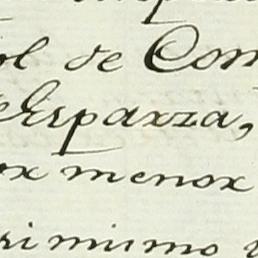 ol de Com
Esparza,
or menor
rimismo